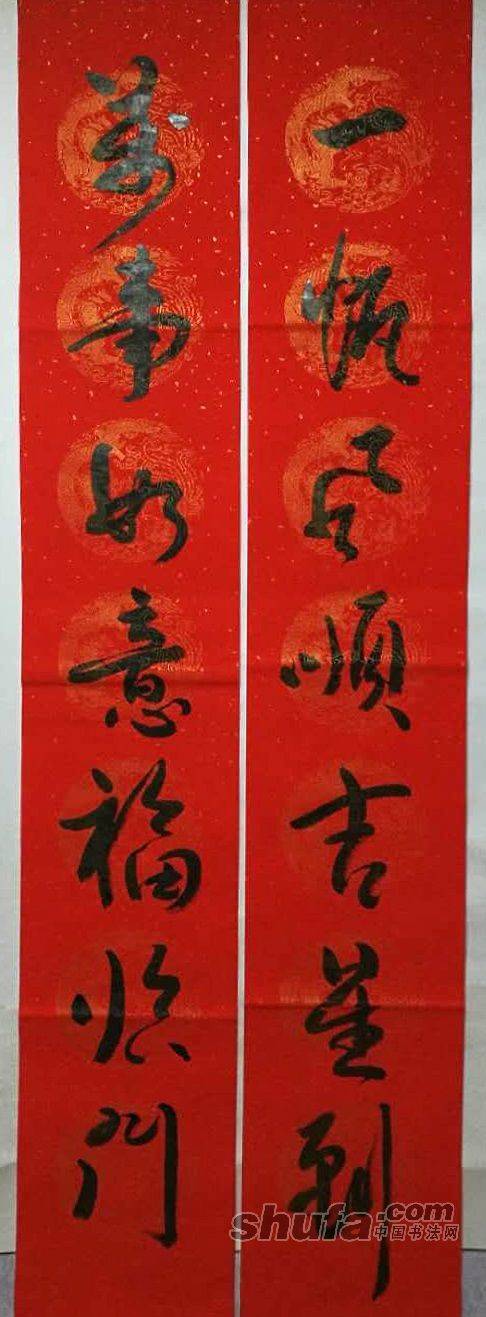 一帆风顺吉星到
萬事如意福临门
shufa.com
中国书法网